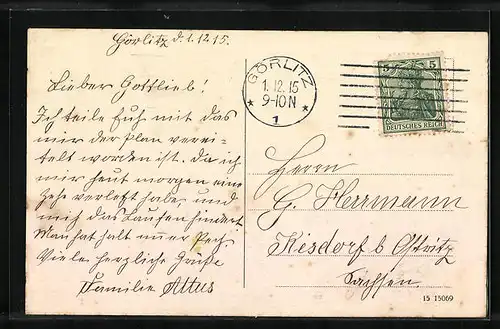 Görlitz d. 1. 12. 15.
Lieber Gottlieb!
Ich teile Euch mit das
mir der Plan verei-
telt worden ist. da ich
mir heut morgen eine
Zehe verletzt habe und
mich das Laufen hindert
Man hat halt immer Pech
Viele herzliche Grüße
Familie Altus
GÖRLITZ
1. 12. 15
9-10 N
* 1 *
5 5
DEUTSCHES REICH
Herrn
G. Herrmann
Kiesdorf b Ostritz
Sachsen.
15 15069